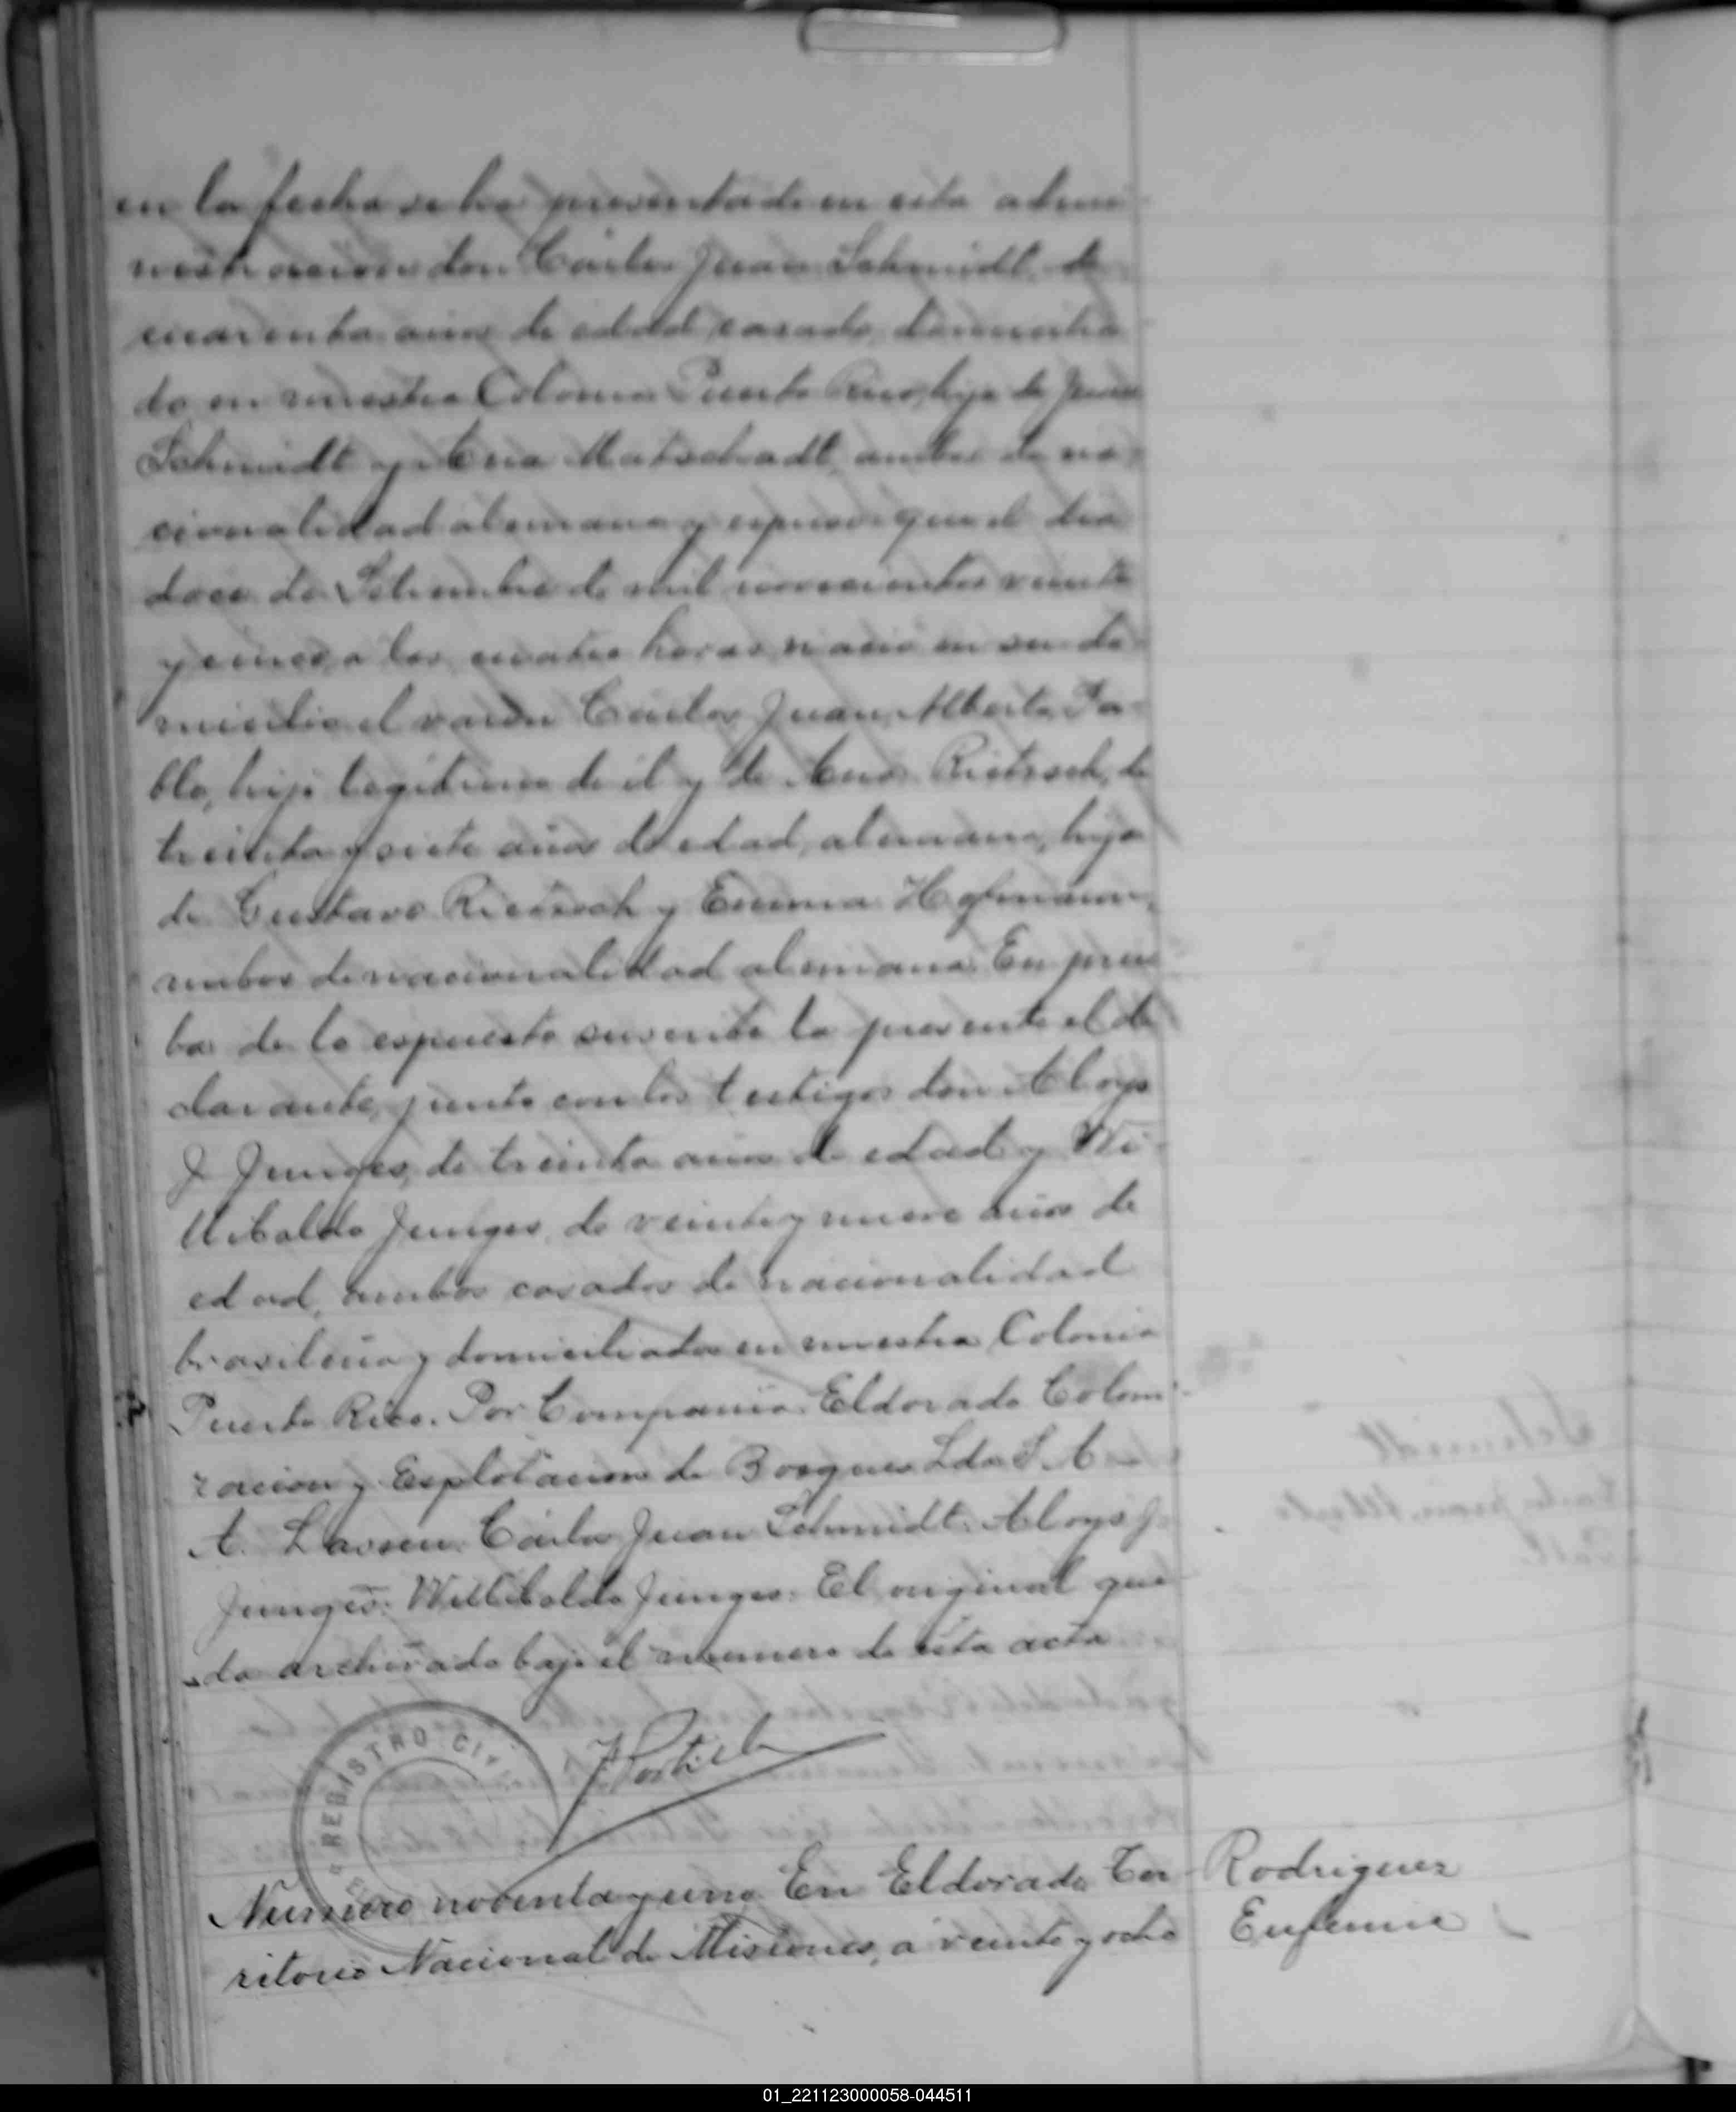 en la fecha se ha presentado en esta admi-
nistracion don Carlos Juan Schmidt, de
cuarenta años de edad, casado, domicilia
do en nuestra Colonia Puerto Rico, hijo de Juan
Schmidt y Ana Matschadt, ambos de na-
cionalidad alemana y espuso: que el dia
doce de Setiembre de mil novecientos veinte
y cinco, a las cuatro horas nació en su do-
micilio el varón Carlos Juan Alberto Pa-
blo, hijo legítimo de él y de Ana Rietzsch, de
treinta y siete años de edad, alemana, hija
de Gustavo Rietzsch y Emma Hofmann,
ambos de nacionalidad alemana. En prue
ba de lo espuesto suscribe la presente el de
clarante, junto con los testigos don Aloys
J. Junges, de treinta años de edad y Wi-
llibaldo Junges, de veinte y nueve años de
edad, ambos casados de nacionalidad
brasileña y domiciliados en nuestra Colonia
Puerto Rico. Por Compañia Eldorado Coloni-
zacion y Esplotacion de Bosques Lda S. A.
A. Lassen. Carlos Juan Schmidt. Aloys J.
Junges. Willibaldo Junges. El original que
da archivado bajo el numero de esta acta
REGISTRO CIV
Numero noventa y uno. En Eldorado Ter
ritorio Nacional de Misiones, a veinte y ocho
Rodriguez
Eufemia
01_221123000058-044511